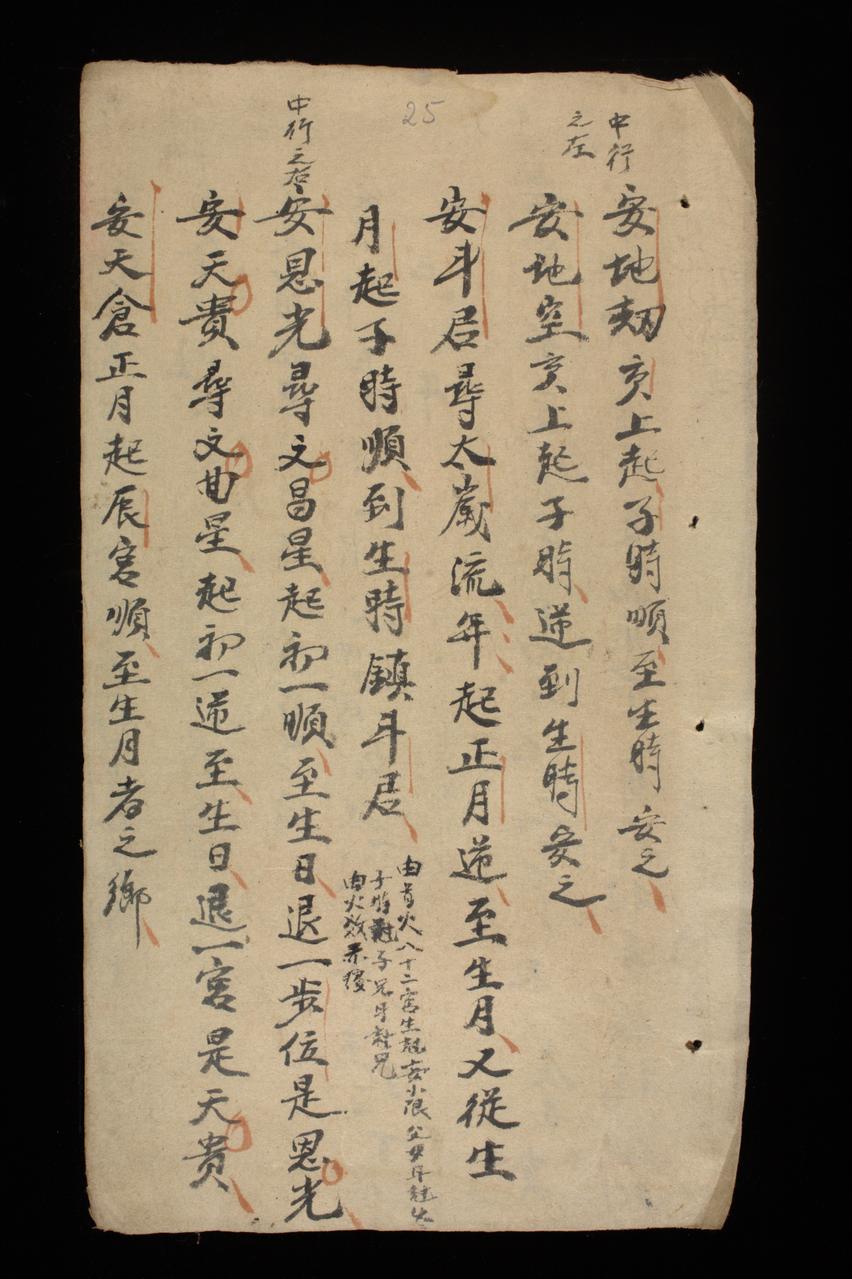 中行
之左
安地刼亥上起子時順至生時安之
安地空亥上起子時逆到生時安之
安斗君尋太歲流年起正月逆至生月又從生
月起子時順到生時鎮斗君
十二宮生
子時
中行之右
25
安恩光尋文昌星起初一順至生日退一步位是恩光
安天貴尋文曲星起初一逆至生日退一宮是天貴
安天倉正月起辰宮順至生月者之鄉